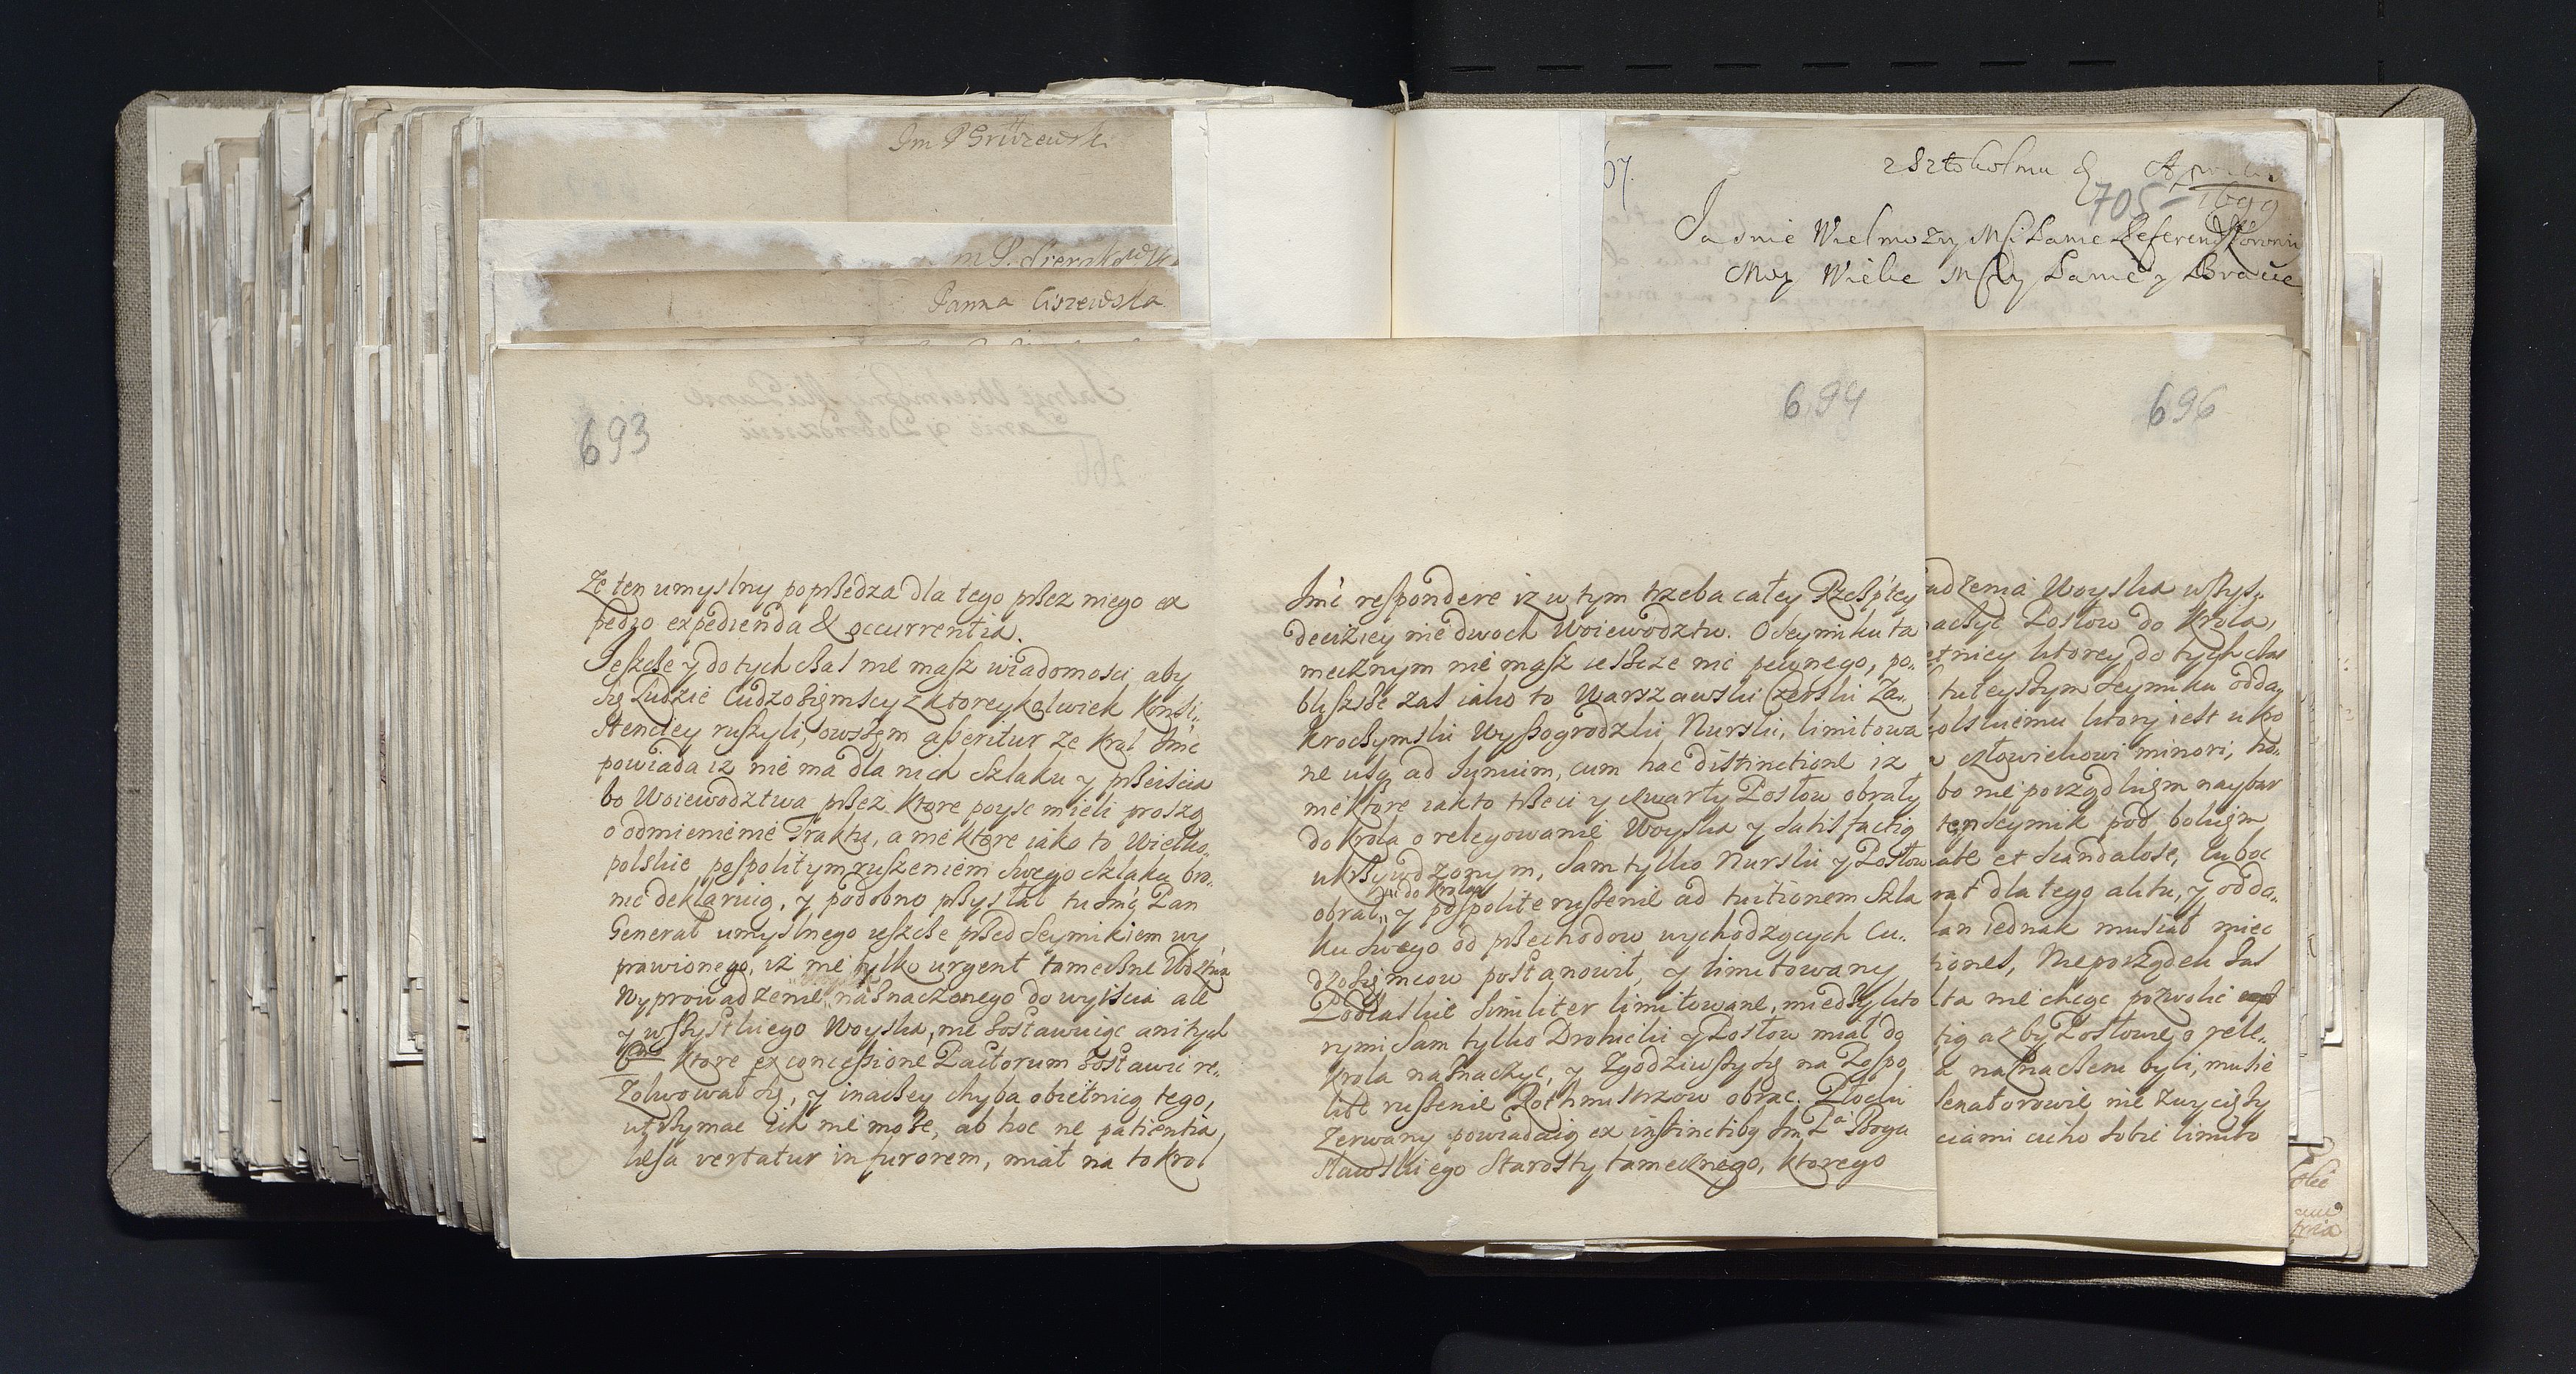 Im P Gruzewski
m P. Sierakowsk
Panna Ciszewska
67.
z Sztokolmu d Aprilis
705 1699
Jasnie Wielmozny Msci Panie Referend Koronny
Moy Wielce Mscwy Panie y Bracie
693
Ze ten umyslny poprzedza dla tego przez niego ex
pedio expedienda & occurrentia.
Jeszcze y do tych czas nie masz wiadomosci aby
się ludzie Cudzoziemscy z ktoreykolwiek Konsi„
stencley ruszyli, owszem asseritur ze Krol Jmc
powiada iz nie ma dla nich Szlaku y przeiscia
bo Woiewodztwa przez ktore poysc mieli proszą
o odmienienie Traktu, a niektore iako to Wielko„
polskie pospolitym ruszeniem swego szlaku bro„
nic deklaruią, y podobno przysłał tu Jmc Pan
General umyslnego ieszcze przed Seymikiem wy
prawionego, iz nie tylko urgent tameczne Wdztwa
Wyprowadzenie naznaczonego do wyiscia ale
y wszystkiego Woyska, nie zostawuiąc ani tych
6m ktore ex concessione Pactorum zostawic re„
zolwował się, y inaczey chyba obietnicą tego,
utrzymac ich nie moze, ab hoc ne patientia,
laesa vertatur in furorem, miał na to Krol
694
Jmc respondere iz w tym trzeba całey Rzeszptey
decizicy nie dwoch Woiewodztw. O Seymiku ta
mecznym nie masz ieszcze nic pewnego, po„
blizsze zas iako to Warszawski Czerski Za„
kroczymski Wyszogrodzki, Nurski, limitowa
ne usq ad Junium, cum hac distinctione iz
niektore iak to trzeci y czwarty Posłow obrały
do Krola o relegowanie Woyska y satisfactią
ukrzywdzonym, sam tylko Nurski y Posłow
do Krola
obrał„ y pospolite ruszenie ad tuitionem Szla
ku swego od przechodow wychodzących Cu„
dzoziemcow postanowił, y limitowany
Podlaskie similiter limitowane, miedzy kto
rymi sam tylko Drohicki y Posłow miał do
Krola naznaczyc, y zgodziwszy się na Pospo
lite ruszenie Rothmistrzow obrac. Płocki
Zerwany powiadaią ex instinctiby Jm Pa Bogu
sławskiego Starosty tamecznego, ktorego
696
adzenia Woyska wszys„
aczyc Posłow do Krola,
etnicy ktorey do tych czas
tuteyszym Seymiku odda„
olskiemu ktory iest u Kro
człowiekowi minori, ko„
bo nie porządkiem naybar
ten Seymik pod bokiem
ale et scandalose, luboc
rał dla tego aktu, y odda„
lan iednak musiał miec
tiones, Nieporządek zas
ta nie chcąc pozwolic
tią azby Posłowie o rele„
naznaczeni byli, musie
Senatorowie nie zwycięzy
ciami cicho sobie limito